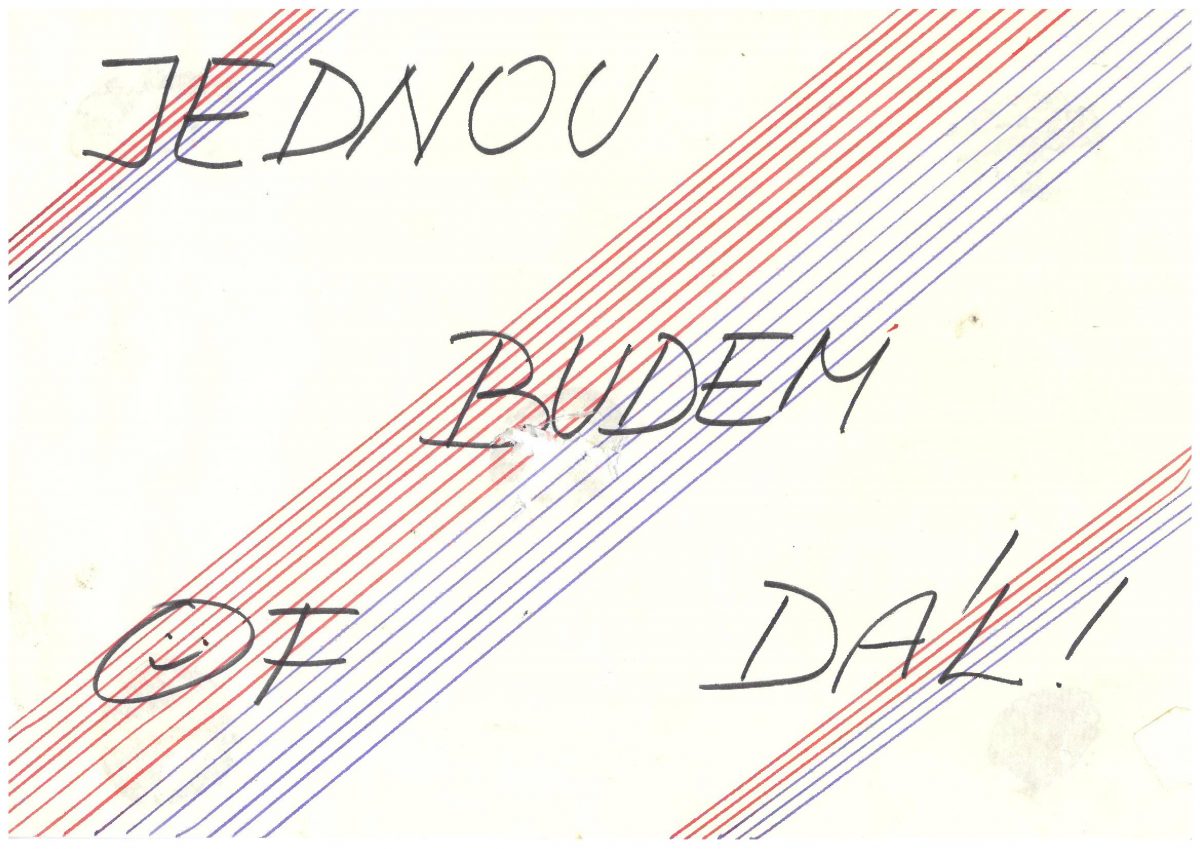 JEDNOU
BUDEM
OF DÁL!